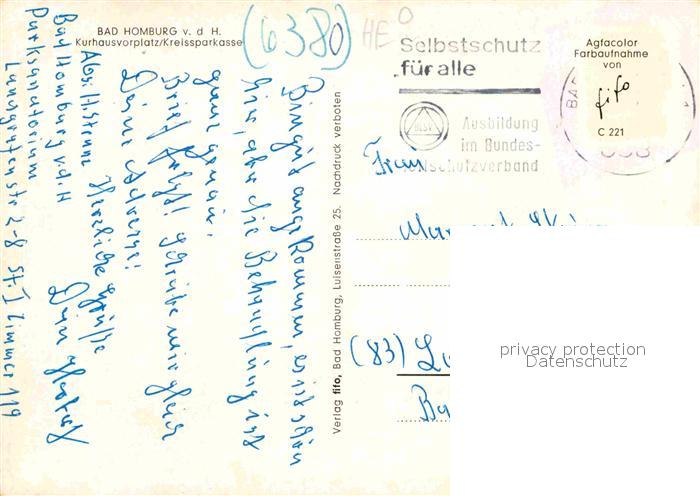 BAD HOMBURG v. d. H.
Kurhausvorplatz/Kreissparkasse
(6380)
HEO
Selbstschutz
für alle
Ausbildung
im Bundes-
luftschutzverband
BLSV
Agfacolor
Farbaufnahme
von
fifo
C 221
BAD
Verlag fifo, Bad Homburg, Luisenstraße 25. Nachdruck verboten
Bin gut angekommen, es ist schön
hier, aber die Behandlung ist
ganz
Brief folgt! Schreibe mir gleich
Deine Adresse!
Herzliche Grüße
Dein
Abs.
Bad Homburg v.d.H
Parksanatorium
Landgrafenstr 2-8 St. I Zimmer 119
Frau
(83) La
Ba
privacy protection
Datenschutz